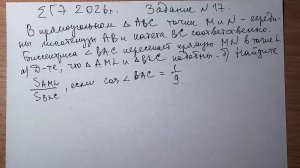 ЕГЭ 2026г. Задание N 17.
В прямоугольном △ ABC точки M и N - середи-
ны гипотенузы AB и катета BC соответственно.
Биссектриса ∠ BAC пересекает прямую MN в точке L
а) Д-те, что △ AML и △ BLC подобны. б) Найдите
S_AML / S_BLC, если cos ∠ BAC = 1/9